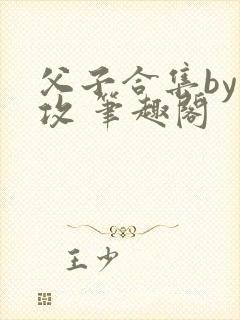 父子合集by
攻 笔趣阁
王少